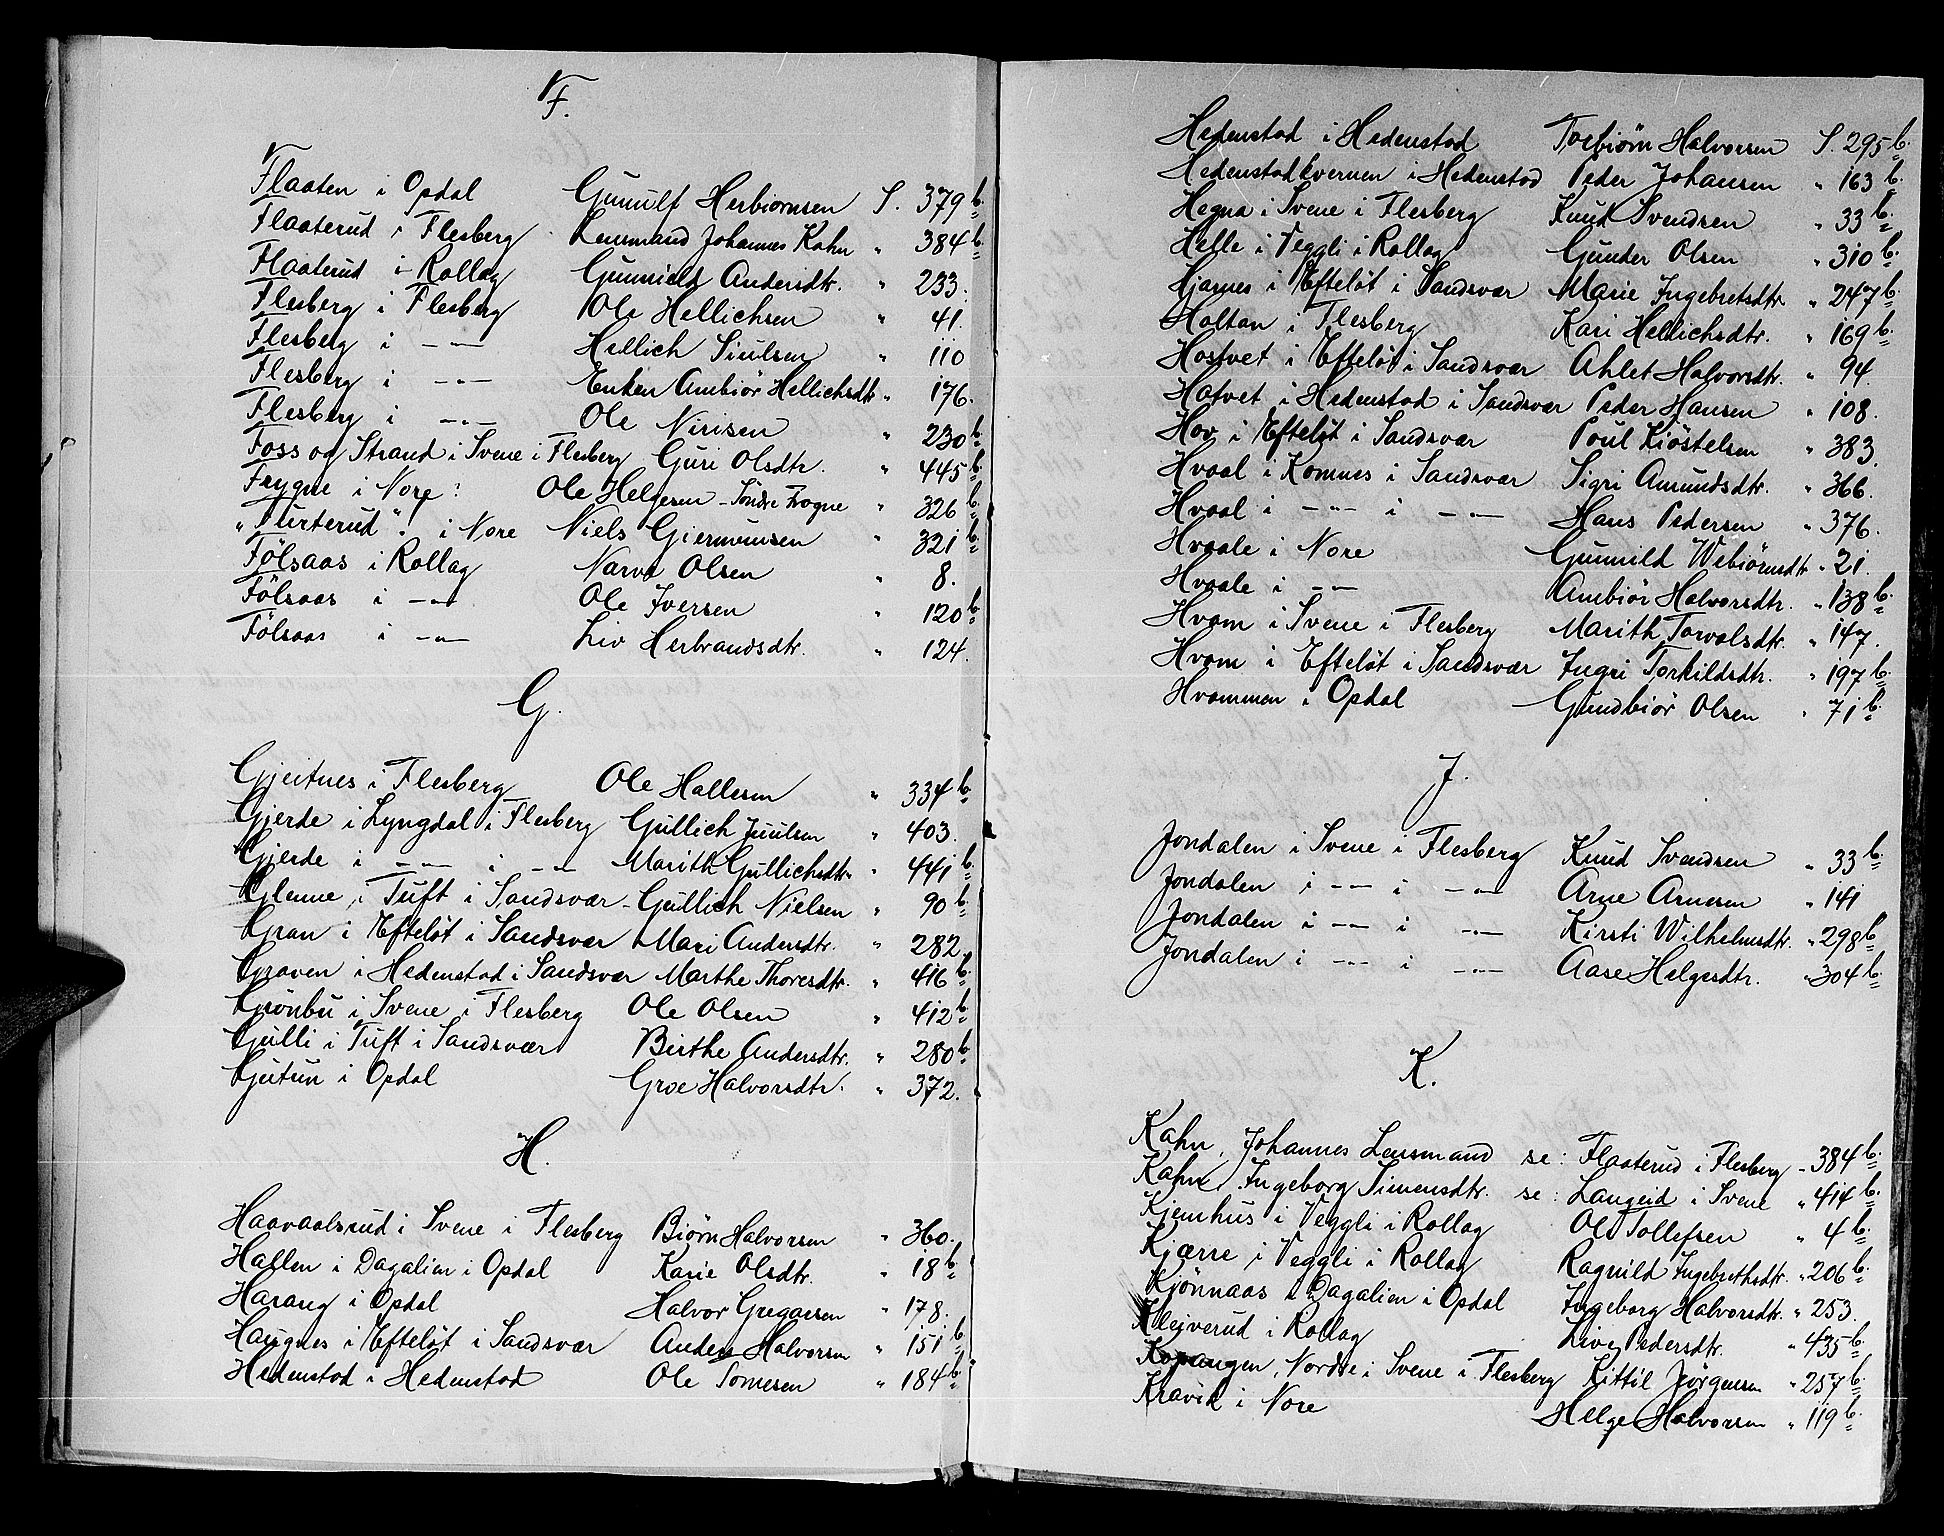 F.
Flaaten i Opdal Gunulf Herbiørnsen S. 379 b.
Flaaterud i Flesberg Lensmand Johannes Kahn " 384 b.
Flaaterud i Rollag Gunnild Andersdtr. " 233.
Flesberg i Flesberg Ole Hellichsen " 41.
Flesberg i -"- Hellich Siulsen " 110
Flesberg i -"- Enken Ambiør Hellichsdtr " 176.
Flesberg i -"- Ole Nirisen " 230 b.
Foss og Strand i Svene i Flesberg Guri Olsdtr. " 445 b.
Frygne i Nore: Ole Helgesen - Söndre Frogne " 326 b.
"Furterud". i Nore Niels Giermunsen " 321 b.
Fölsaas i Rollag Narve Olsen " 8.
Fölsaas i -"- Ole Iversen " 120 b.
Fölsaas i -"- Liv Herbrandsdtr. " 124.
G.
Gjeitnes i Flesberg Ole Hallesen " 334 b.
Gjerde i Lyngdal i Flesberg Gullich Juulsen " 403.
Gjerde i -"- i -"- Marith Gullichsdtr " 441 b.
Glenne i Tuft i Sandsvær - Gullich Nielsen " 90 b.
Gran i Efteløt i Sandsvær Mari Andersdtr. " 282.
Graven i Hedenstad i Sandsvær Marthe Thoresdtr. " 416 b.
Grönbu i Svene i Flesberg Ole Olsen " 412 b.
Gulli i Tuft i Sandsvær Birthe Andersdtr. " 280 b.
Gutun i Opdal Groe Halvorsdtr. " 372.
H.
Haavaalsrud i Svene i Flesberg Biørn Halvorsen " 360.
Hallen i Dagalien i Opdal Karie Olsdtr. " 18 b.
Harang i Opdal Halvor Gregarsen " 178.
Haugnes i Efteløt i Sandsvær Anders Halvorsen " 151 b.
Hedenstad i Hedenstad Ole Tomesen " 184 b.
Hedenstad i Hedenstad Torbiörn Halvorsen S. 295 b.
Hedenstadkvernen i Hedenstad Peder Johansen " 163 b.
Hegna i Svene i Flesberg Knud Svendsen " 33 b.
Helle i Veggli i Rollag Gunder Olsen " 310 b.
Hjarnes i Efteløt i Sandsvær Marie Ingebretsdtr. " 247 b.
Holtan i Flesberg Kari Hellichsdtr. " 169 b.
Hostvet i Efteløt i Sandsvær Ahlet Halvorsdtr. " 94.
Hotvet i Hedenstad i Sandsvær Peder Hansen " 108.
Hov i Efteløt i Sandsvær Poul Kiöstelsen " 383.
Hvaal i Komnes i Sandsvær Sigri Amundsdtr. " 366.
Hvaal i -"- i -"- Hans Pedersen " 376.
Hvaale i Nore Gunnild Webiörnsdtr " 21.
Hvaale i -"- Ambiör Halvorsdtr. " 138 b.
Hvam i Svene i Flesberg Marith Torvalsdtr. " 147.
Hvam i Efteløt i Sandsvær Ingri Torkildsdtr. " 197 b.
Hvammen i Opdal Gundbiör Olsen " 71 b.
J.
Jondalen i Svene i Flesberg Knud Svendsen " 33 b.
Jondalen i -"- i -"- Arne Arnesen " 141
Jondalen i -"- i -"- Kirsti Wilhelmsdtr. " 298 b.
Jondalen i -"- i -"- Aase Helgesdtr. " 304 b.
K.
Kahn, Johannes Lensmand se: Flaaterud i Flesberg - 384 b.
Kahn, Ingeborg Simensdtr. se: Langeid i Svene " 414 b.
Kjemhus i Veggli i Rollag Ole Tollefsen " 4 b.
Kjærre i Veggli i Rollag Ragnild Ingebrethsdtr. " 206 b.
Kjönnaas i Dagalien i Opdal Ingeborg Halvorsdtr. " 253.
Kleiverud i Rollag Live Pedersdtr. " 435 b.
Kopangen, Nordre i Svene i Flesberg Kittil Jörgensen " 257 b.
Kravik i Nore Helge Halvorsen " 119 b.